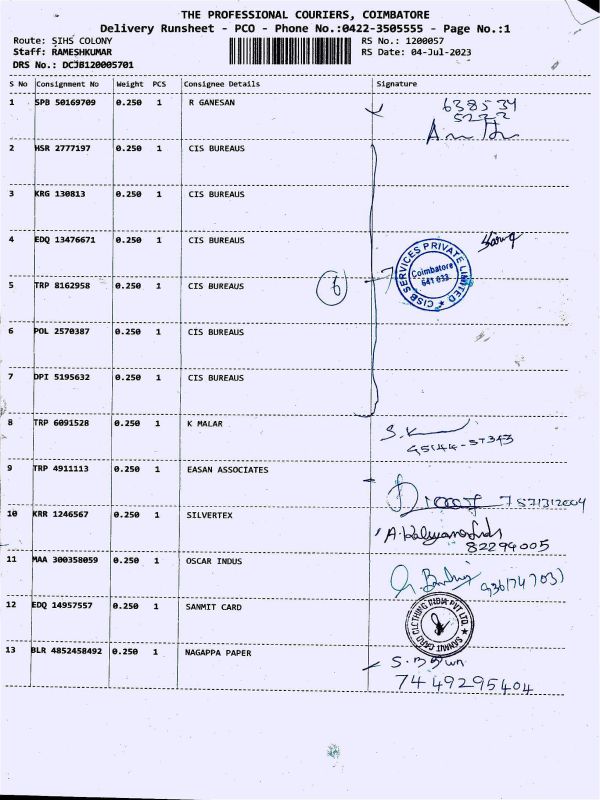 THE PROFESSIONAL COURIERS, COIMBATORE
Delivery Runsheet - PCO - Phone No.:0422-3505555 - Page No.:1
Route: SIHS COLONY RS No.: 1200057
Staff: RAMESHKUMAR RS Date: 04-Jul-2023
DRS No.: DCJB120005701
S No Consignment No Weight PCS Consignee Details Signature
1 SPB 50169709 0.250 1 R GANESAN
638534
5222
2 HSR 2777197 0.250 1 CIS BUREAUS
3 KRG 130813 0.250 1 CIS BUREAUS
4 EDQ 13476671 0.250 1 CIS BUREAUS
CISB SERVICES PRIVATE LIMITED
Coimbatore
641 033
5 TRP 8162958 0.250 1 CIS BUREAUS
6
6 POL 2570387 0.250 1 CIS BUREAUS
7 DPI 5195632 0.250 1 CIS BUREAUS
8 TRP 6091528 0.250 1 K MALAR
9 TRP 4911113 0.250 1 EASAN ASSOCIATES
10 KRR 1246567 0.250 1 SILVERTEX
82294005
11 MAA 300358059 0.250 1 OSCAR INDUS
12 EDQ 14957557 0.250 1 SANMIT CARD
SANMIT CARD CLOTHING INDIA PVT LTD.
13 BLR 4852458492 0.250 1 NAGAPPA PAPER
7449295404